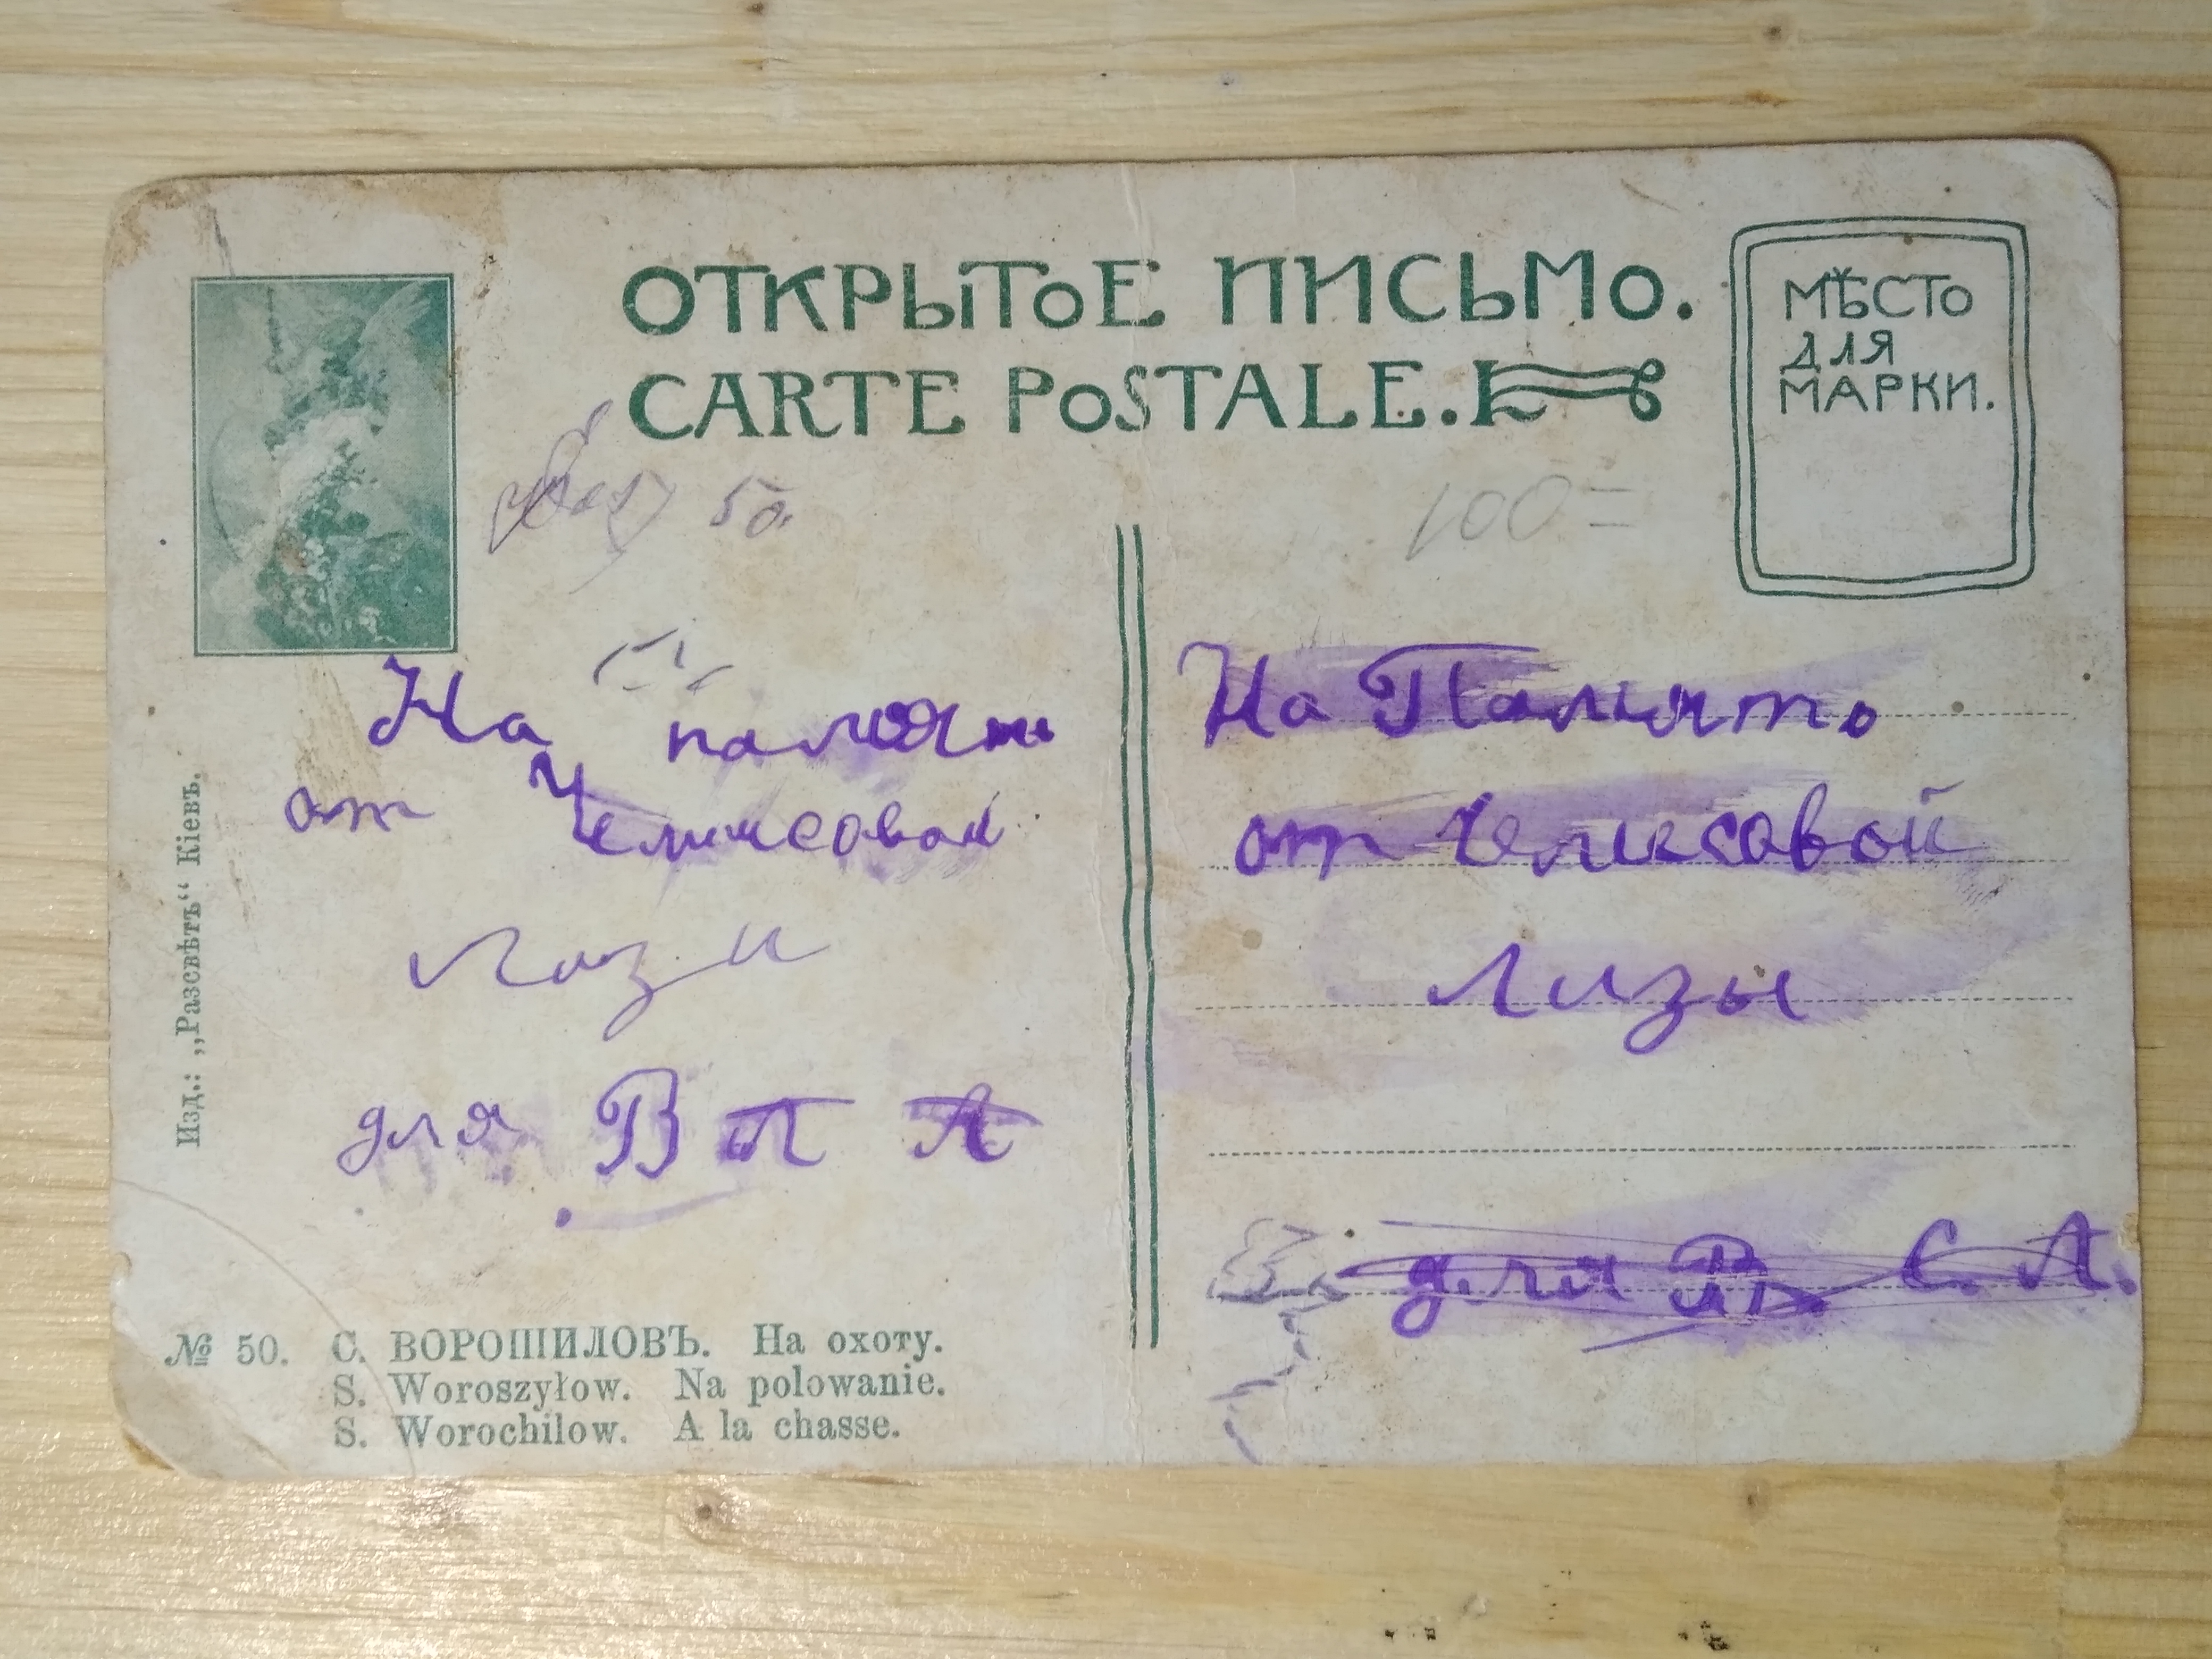 ОТКРЫТОЕ ПИСЬМО.
CARTE POSTALE.
МѢСТО
ДЛЯ
МАРКИ.
50.
100=
На память
от Чемисовой
Лизи
для В П А
На Память
от Чемисовой
Лизы
для В. С. А.
Изд.: „Разсвѣтъ“ Кіевъ.
№ 50. С. ВОРОШИЛОВЪ. На охоту.
S. Woroszyłow. Na polowanie.
S. Worochilow. A la chasse.